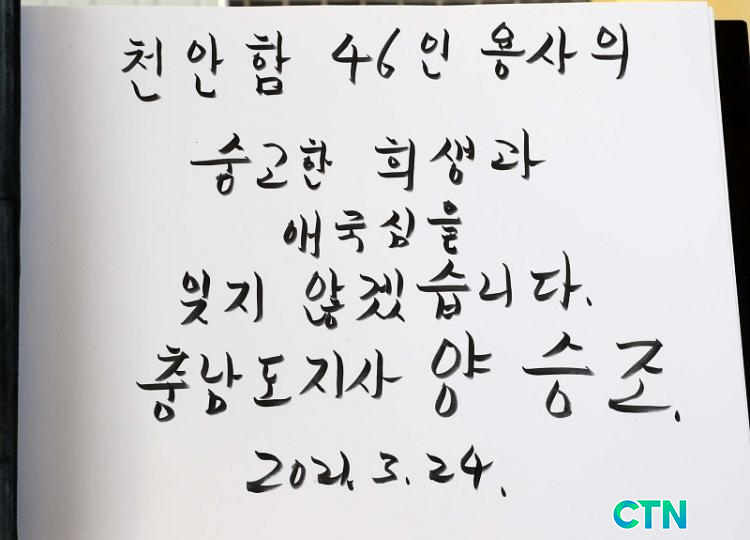 천안함 46인 용사의
숭고한 희생과
애국심을
잊지 않겠습니다.
충남도지사 양승조.
2021. 3. 24.
CTN